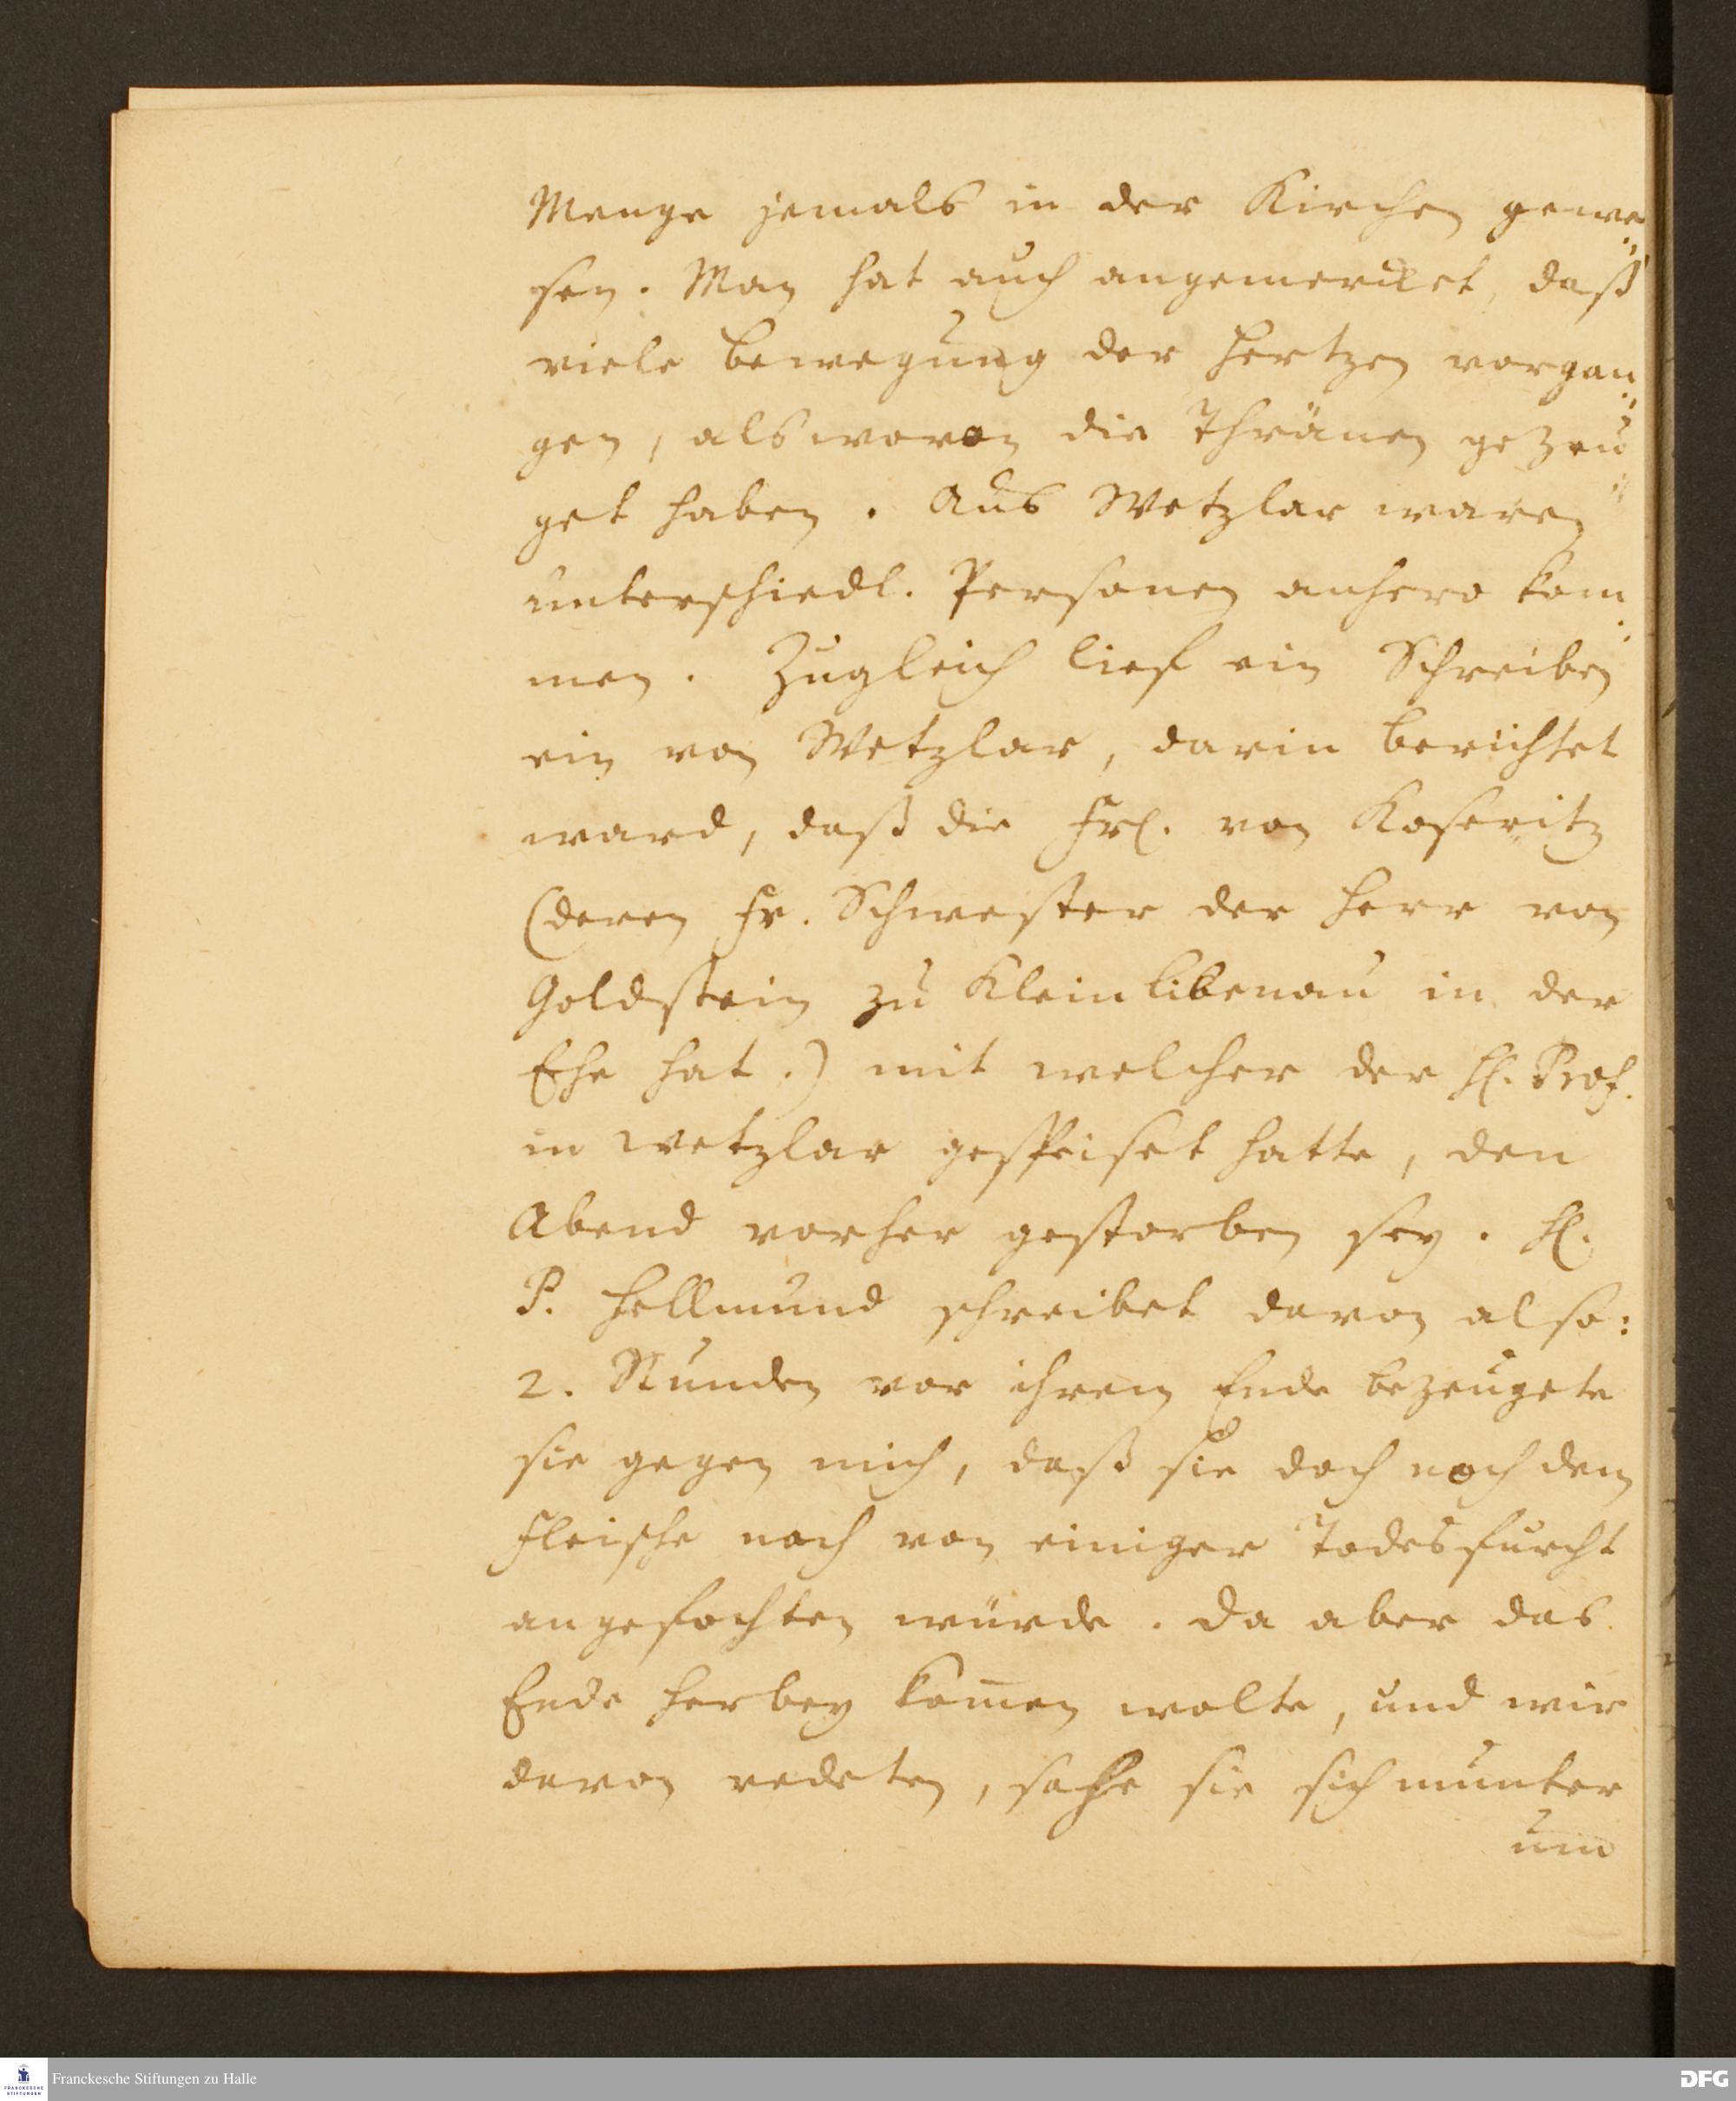 Menge jemals in der Kirchen gewe-
sen. Man hat auch angemercket, daß
viele bewegung der Hertzen vorgan-
gen, als wovon die Thränen gezeu-
get haben. Aus Wetzlar waren
unterschiedl. Personen anhero kom-
men. Zugleich lief ein Schreiben
ein von Wetzlar, darin berichtet
ward, daß die Frl. von Koseritz
(deren Fr. Schwester der Herr von
Goldstein zu Kleinlibenau in der
Ehe hat.) mit welcher der H. Prof.
in Wetzlar gespeiset hatte, den
Abend vorher gestorben sey. H.
P. Hellmund schreibet davon also:
2. Stunden vor ihrem Ende bezeugete
sie gegen mich, daß sie doch nach dem
Fleische noch von einiger Todesfurcht
angefochten würde. Da aber das
Ende herbey kom̄en wolte, und wir
davon redeten, sahe sie sich munter
um
Franckesche Stiftungen zu Halle
FRANCKESCHE
STIFTUNGEN
DFG